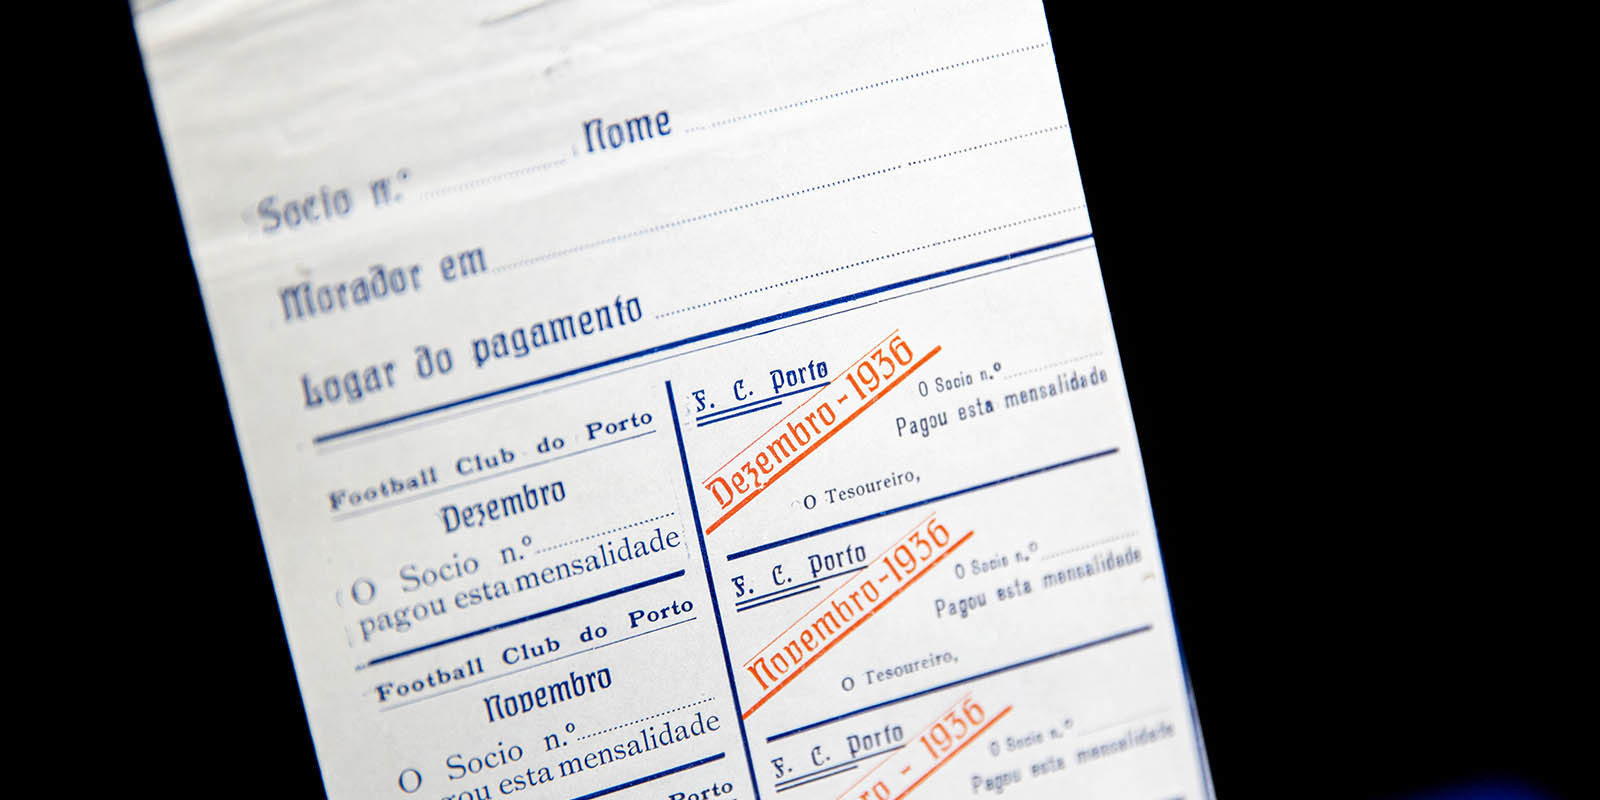 Socio n.º Nome
Morador em
Logar do pagamento
Football Club do Porto
Dezembro
O Socio n.º
pagou esta mensalidade
F. C. Porto
Dezembro - 1936
O Socio n.º
Pagou esta mensalidade
O Tesoureiro,
Football Club do Porto
Novembro
O Socio n.º
pagou esta mensalidade
F. C. Porto
Novembro - 1936
O Socio n.º
Pagou esta mensalidade
O Tesoureiro,
Porto
F. C. Porto
ro - 1936
O Socio n.º
Pagou esta mensalidade